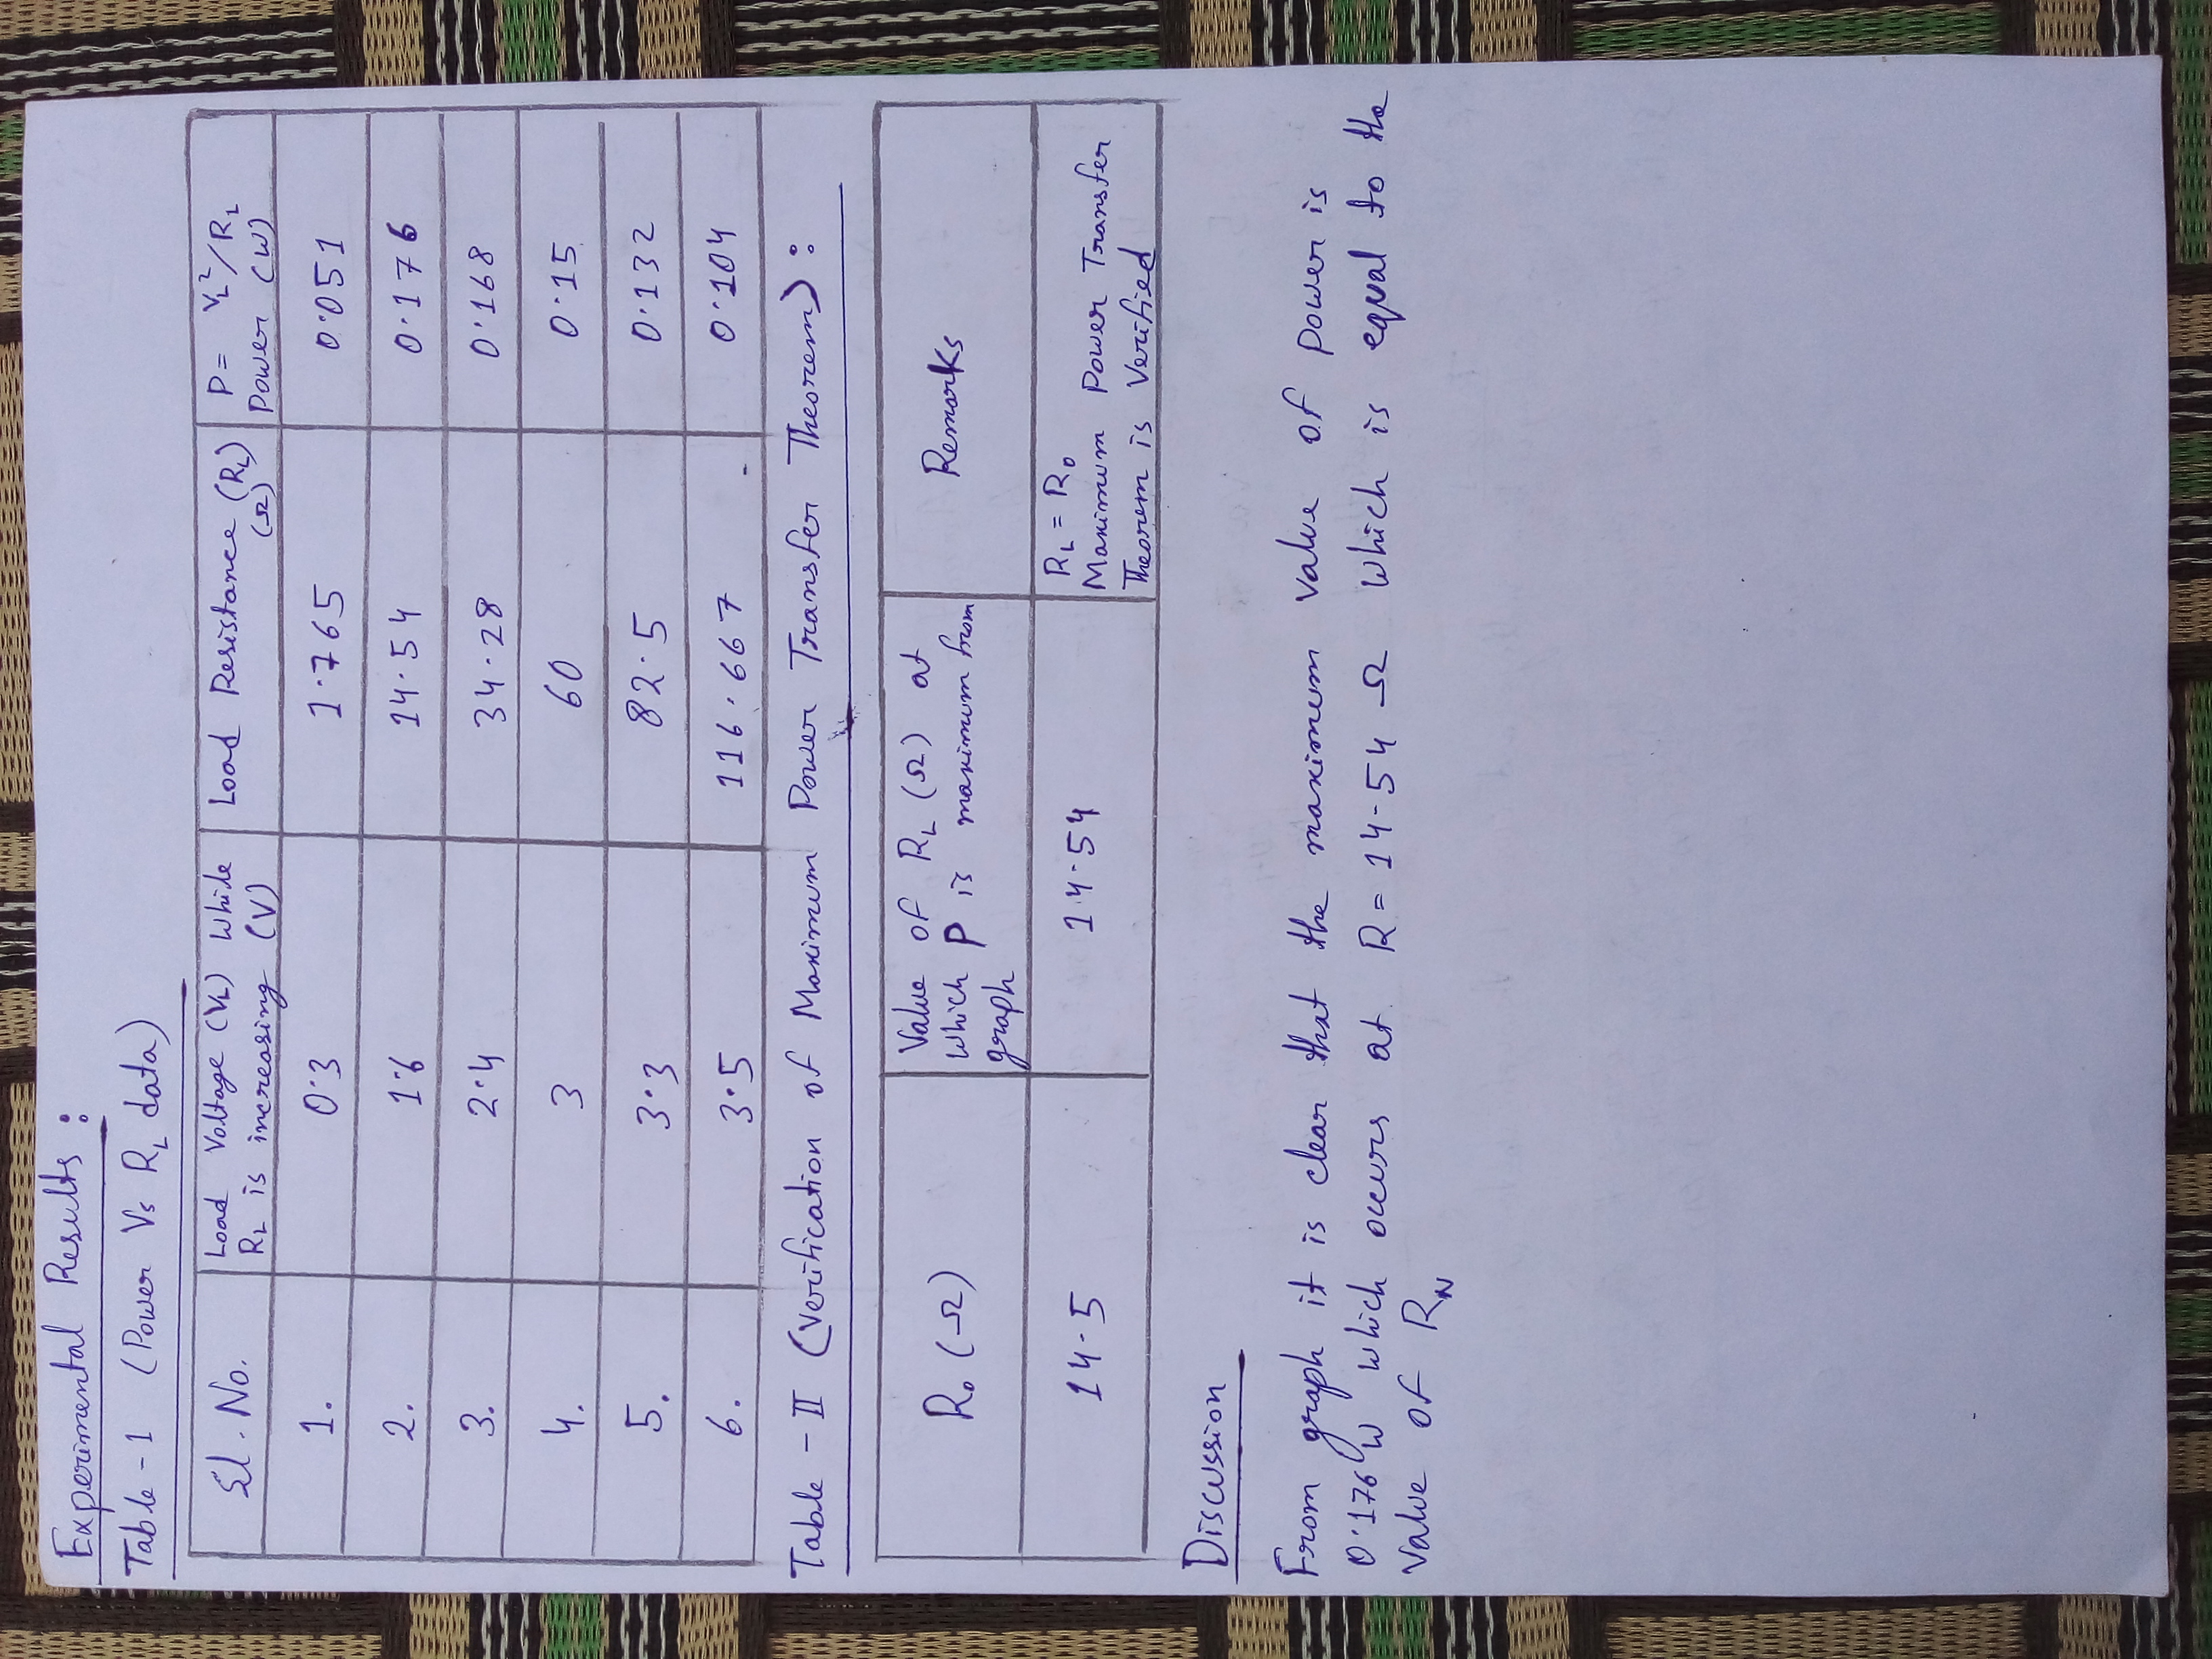 Experimental Results :
Table - 1 (Power Vs RL data)
Sl. No.
Load Voltage (VL) While
RL is increasing (V)
Load Resistance (RL)
(Ω)
P = VL²/RL
Power (W)
1. 0.3 1.765 0.051
2. 1.6 14.54 0.176
3. 2.4 34.28 0.168
4. 3 60 0.15
5. 3.3 82.5 0.132
6. 3.5 116.667 0.104
Table - II (Verification of Maximum Power Transfer Theorem) :
R0 (Ω)
Value of RL (Ω) at
which P is maximum from
graph
Remarks
14.5
14.54
RL = R0
Maximum Power Transfer
Theorem is Verified
Discussion
From graph it is clear that the maximum value of power is
0.176 W which occurs at R = 14.54 Ω which is equal to the
Value of RN